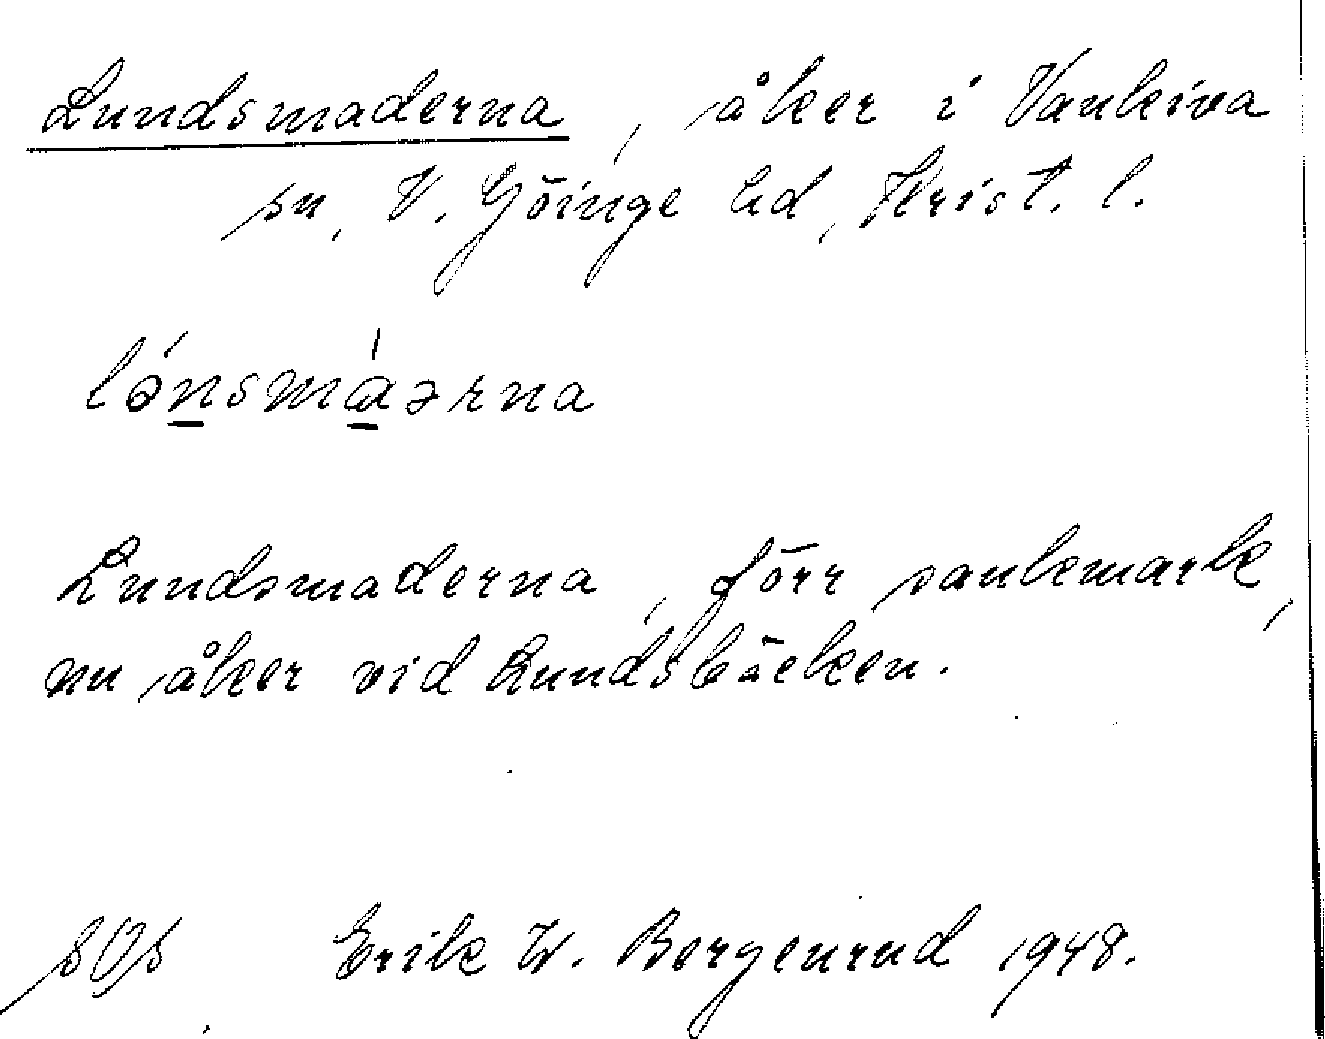 Lundsmaderna, åker i Vankiva
sn, V. Göinge hd, Krist. l.
lǿnsmáərna
Lundsmaderna, förr sankmark,
nu åker vid Lundsbäcken.
SOS Erik W. Bergenrud 1948.